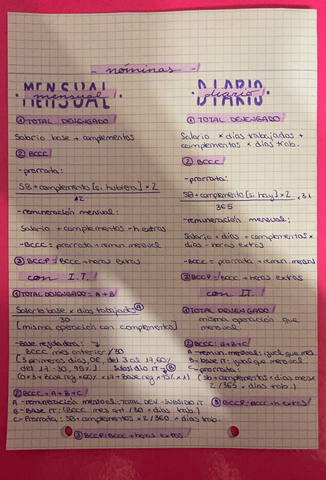 - nóminas -
MENSUAL
mensual
① TOTAL DEVENGADO
Salario base + complementos
② BCCC
- prorrata:
SB + complemento [si hubiera] × 2
12
- remuneración mensual:
Salario + complementos - h extras
- BCCC = prorrata + remun. mensual
③ BCCP = BCCC + horas extras
con I.T.
① TOTAL DEVENGADO = A + B
Salario base × días trabajados Ⓐ
30
[misma operación con complementos]
- Base reguladora:
BCCC mes anterior / 30
② BCCC = A + B + C
A - remuneración mensual = TOTAL DEV - SUBSIDIO IT
B - BASE IT = (BCCC mes ant / 30 × días trab.)
C - Prorrata = SB + complementos × 2 / 360 × días trab.
③ BCCP = BCCC + horas extras
DIARIO
diario
① TOTAL DEVENGADO
Salario × días trabajados +
complementos × días trab.
② BCCC
- prorrata:
SB + complemento [si hay] × 2 × 31
365
- remuneración mensual:
Salario × días + complementos ×
días - horas extras
- BCCC = prorrata + remun. mens
③ BCCP = BCCC + horas extras
con IT.
① TOTAL DEVENGADO
misma operación que
mensual
② BCCC = A + B + C
A - remun. mensual = igual que mes
B - base IT = igual que mensual
C - prorrata =
(sb + complementos × días mes ×
2 / 365 × días trab.)
③ BCCP = BCCC + h extras